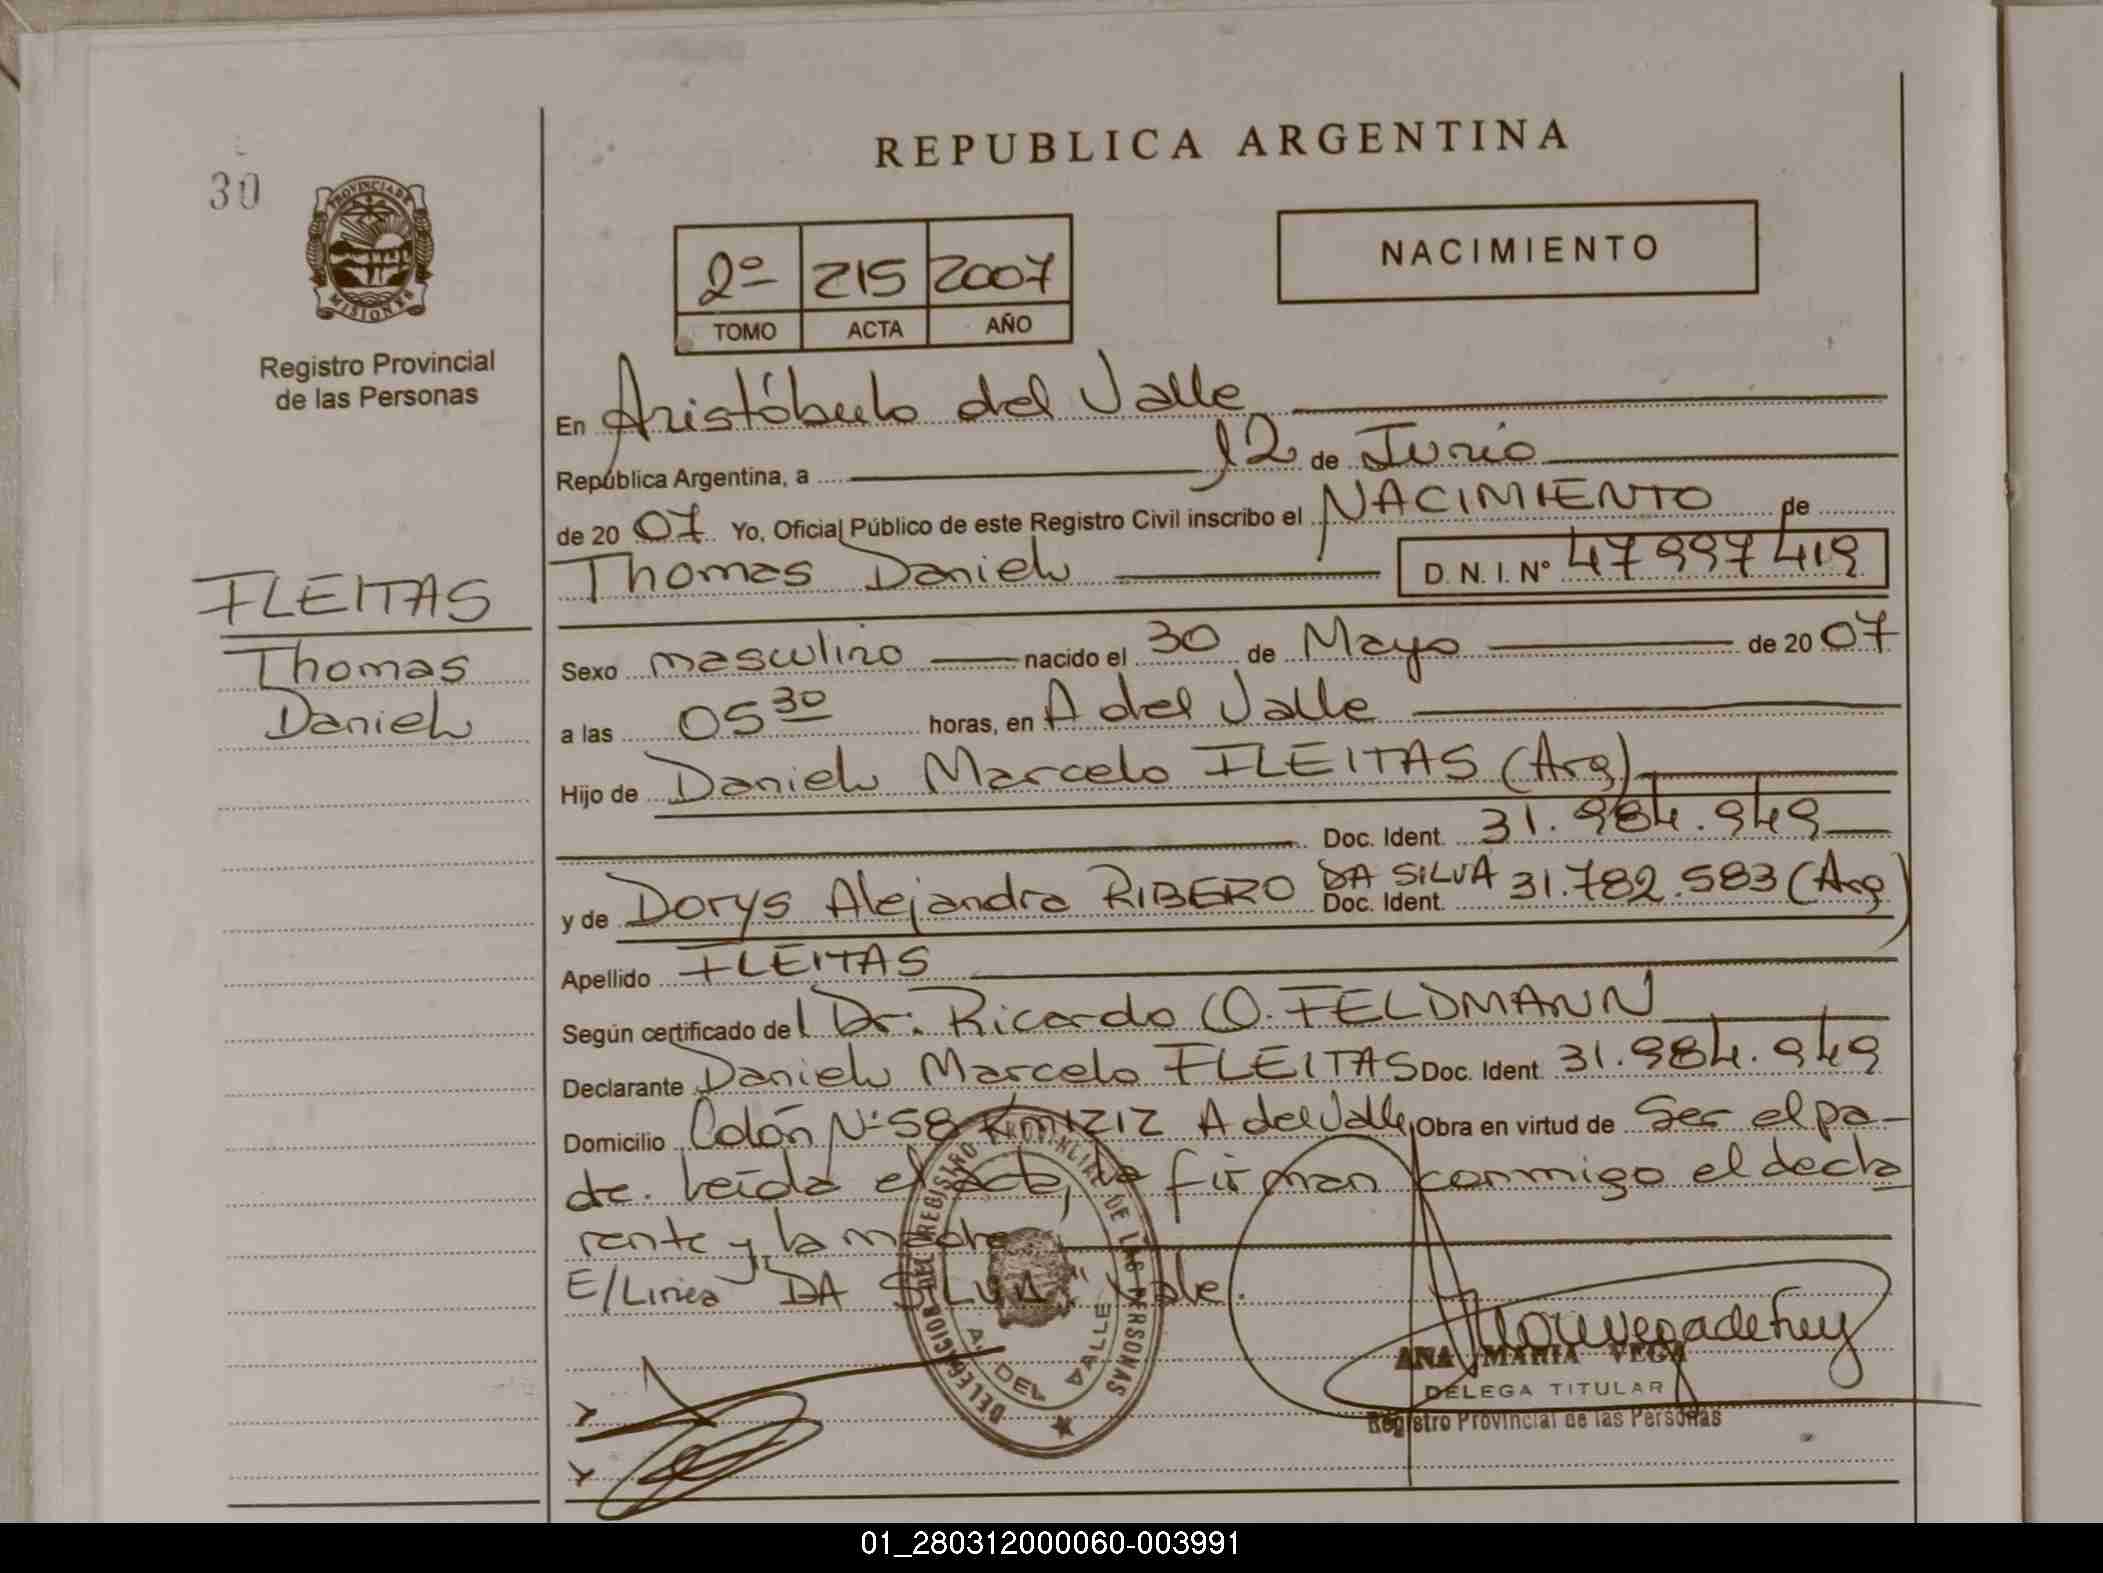 REPUBLICA ARGENTINA
30
PROVINCIA DE MISIONES
Registro Provincial
de las Personas
NACIMIENTO
2º 215 2007
TOMO ACTA AÑO
En Aristóbulo del Valle
República Argentina, a 12 de Junio
de 2007 Yo, Oficial Público de este Registro Civil inscribo el NACIMIENTO de
Thomas Daniel D. N. I. Nº 47997419
FLEITAS
Thomas
Daniel
Sexo masculino nacido el 30 de Mayo de 2007
a las 05 30 horas, en A del Valle
Hijo de Daniel Marcelo FLEITAS (Arg)
Doc. Ident. 31.984.949
y de Dorys Alejandra RIBERO DA SILVA Doc. Ident. 31.782.583 (Arg)
Apellido FLEITAS
Según certificado del Dr. Ricardo O. FELDMANN
Declarante Daniel Marcelo FLEITAS Doc. Ident. 31.984.949
Domicilio Colón Nº 58 Km 1212 A del Valle Obra en virtud de Ser el pa-
dre. Leída el acta, la firman conmigo el decla
rante y la madre
E/Linea "DA SILVA" Vale.
DELEGACION DEL REGISTRO PROVINCIAL DE LAS PERSONAS
A. DEL VALLE
ANA MARIA VEGA
DELEGA TITULAR
Registro Provincial de las Personas
01_280312000060-003991